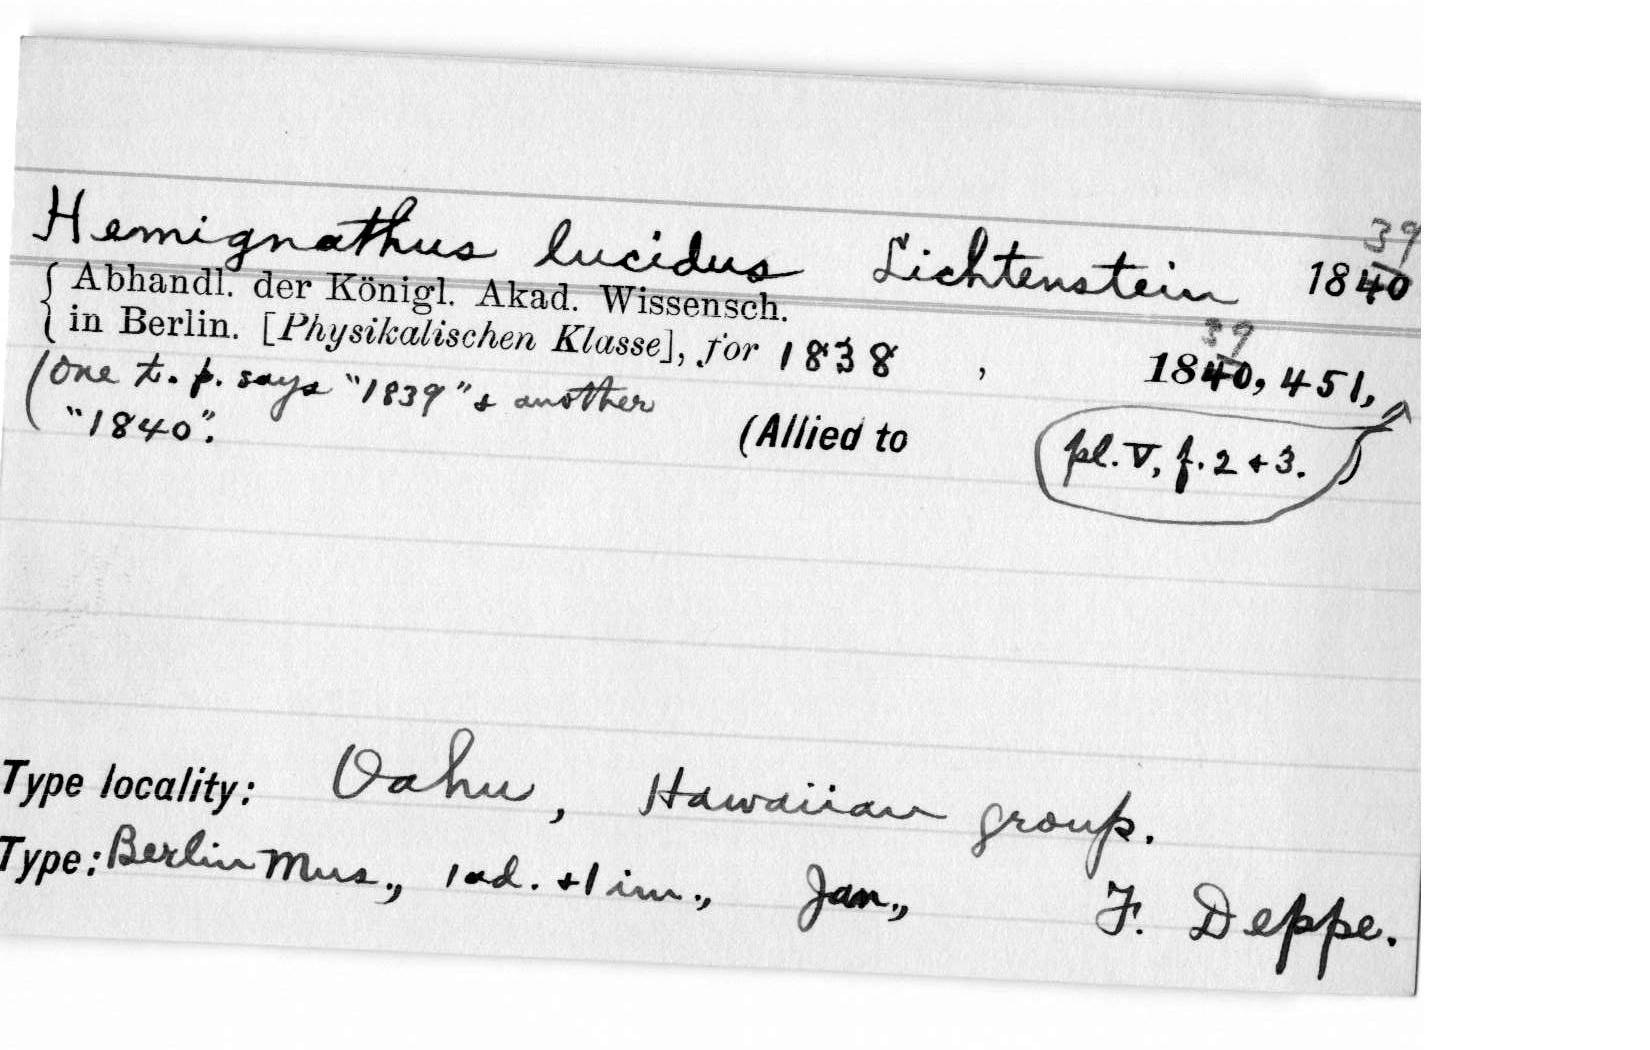 Hemignathus lucidus Lichtenstein 1840 39
Abhandl. der Königl. Akad. Wissensch.
in Berlin. [Physikalischen Klasse], for 1838 , 1840, 451, 39
(One t. p. says "1839" & another
"1840".
(Allied to pl. V, f. 2 + 3. )
Type locality: Oahu, Hawaiian group.
Type: Berlin Mus., 1 ad. + 1 im., Jan., F. Deppe.